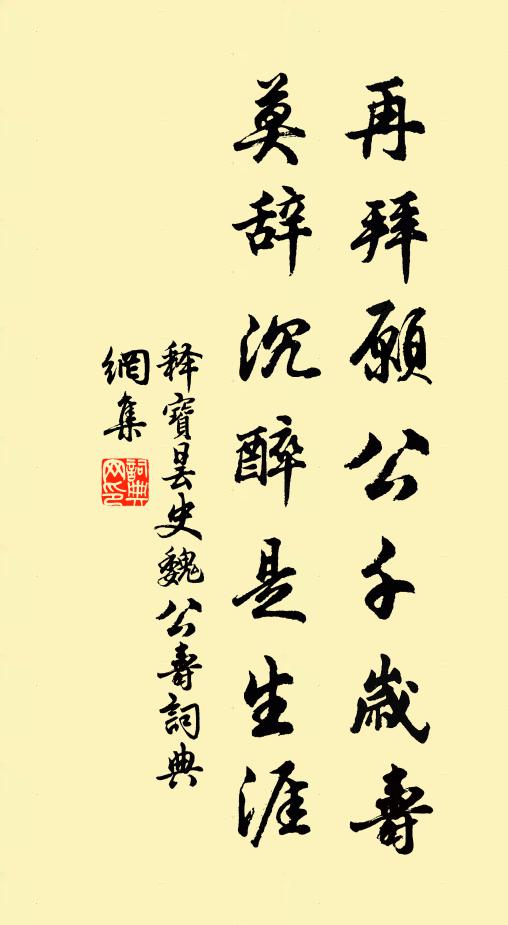 再拜願公千歲壽
莫辞沉醉是生涯
释寶昙史魏公壽詞典
網集
詞典
网印